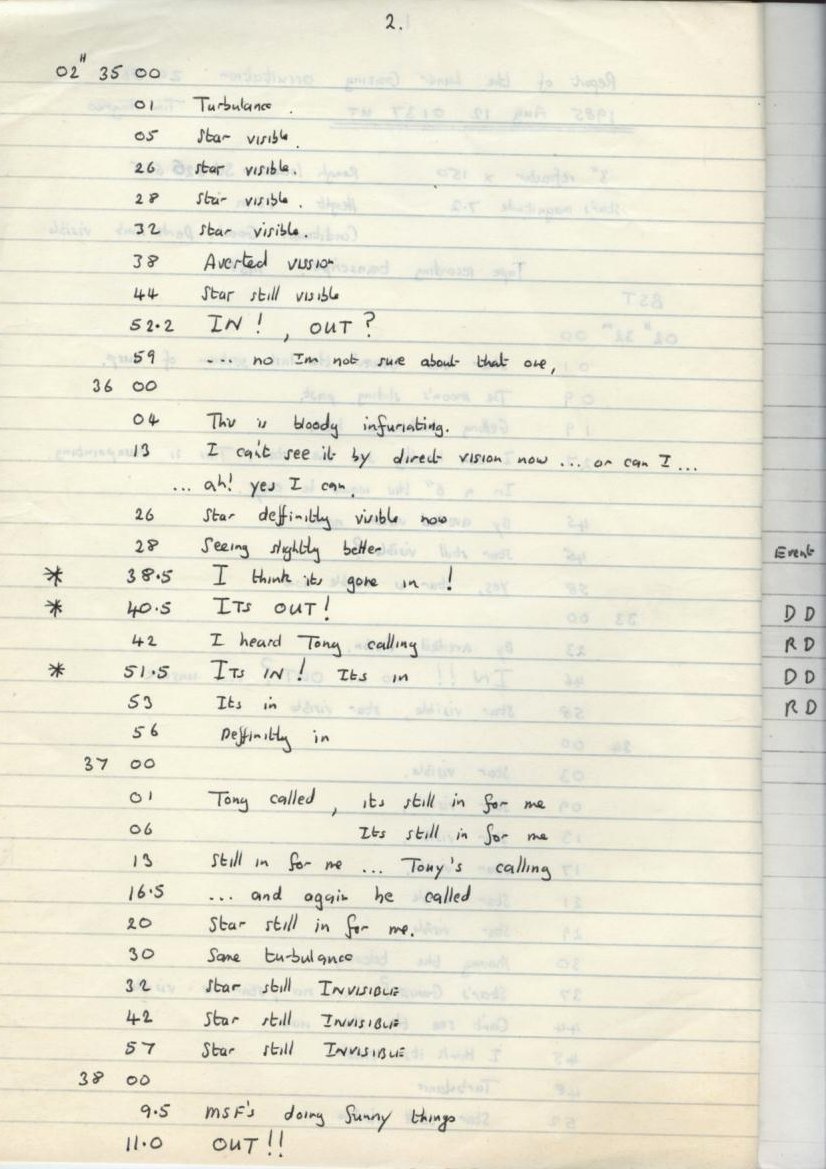 2.
02ᴴ 35 00
01 Turbulance.
05 Star visible.
26 star visible.
28 star visible.
32 star visible.
38 Averted vission
44 Star still visible
52.2 IN! , OUT?
59 .... no Im not sure about that one,
36 00
04 This is bloody infuriating.
13 I can't see it by direct vision now ... or can I ...
... ah! yes I can.
26 Star deffinitly visible now
28 Seeing slightly better
Event
* 38.5 I think its gone in !
* 40.5 ITS OUT! D D
42 I heard Tony calling R D
* 51.5 ITS IN! Its in D D
53 Its in R D
56 Deffinitly in
37 00
01 Tony called , its still in for me
06 Its still in for me
13 Still in for me ... Tony's calling
16.5 ... and again he called
20 Star still in for me.
30 Some turbulance
32 Star still INVISIBLE
42 Star still INVISIBLE
57 Star still INVISIBLE
38 00
9.5 MSF's doing funny things
11.0 OUT!!